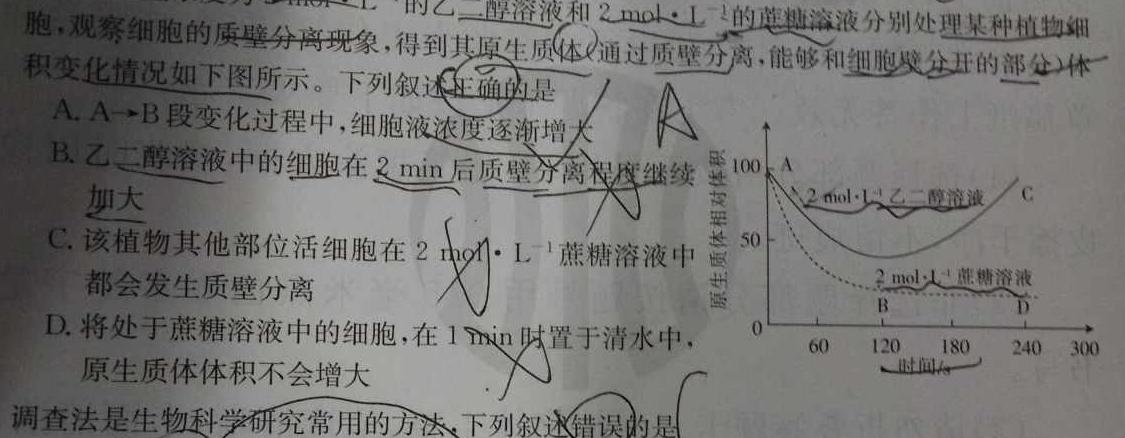 的乙二醇溶液和2 mol·L⁻¹的蔗糖溶液分别处理某种植物细
胞,观察细胞的质壁分离现象,得到其原生质体(通过质壁分离,能够和细胞壁分开的部分)体
积变化情况如下图所示。下列叙述正确的是
A. A→B段变化过程中,细胞液浓度逐渐增大
A
B. 乙二醇溶液中的细胞在2 min后质壁分离程度继续
加大
C. 该植物其他部位活细胞在2 mol·L⁻¹蔗糖溶液中
都会发生质壁分离
D. 将处于蔗糖溶液中的细胞,在1 min时置于清水中,
原生质体体积不会增大
原生质体相对体积
100
A
2 mol·L⁻¹乙二醇溶液
C
50
2 mol·L⁻¹蔗糖溶液
B
D
0
60 120 180 240 300
时间/s
调查法是生物科学研究常用的方法,下列叙述错误的是